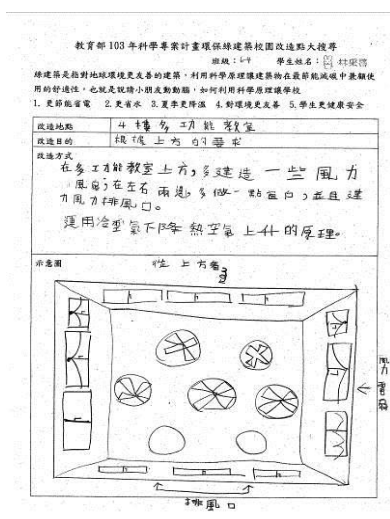 教育部103年科學專案計畫環保綠建築校園改造點大搜尋
班級：6-4 學生姓名：林
綠建築是指對地球環境更友善的建築，利用科學原理讓建築物在最節能減碳中兼顧使
用的舒適性，也就是說請小朋友動動腦，如何利用科學原理讓學校
1. 更節能省電 2.更省水 3.夏季更降溫 4.對環境更友善 5.學生更健康安全
改造地點 4樓多功能教室
改造目的 根據上方的要求
改造方式
在多工力能教室上方，多建造一些風力
風扇；在左右兩邊，多做一點窗户，並且建
力風力排風口。
運用冷空氣下降熱空氣上升的原理。
示意圖 從上方看
風力電扇
排風口